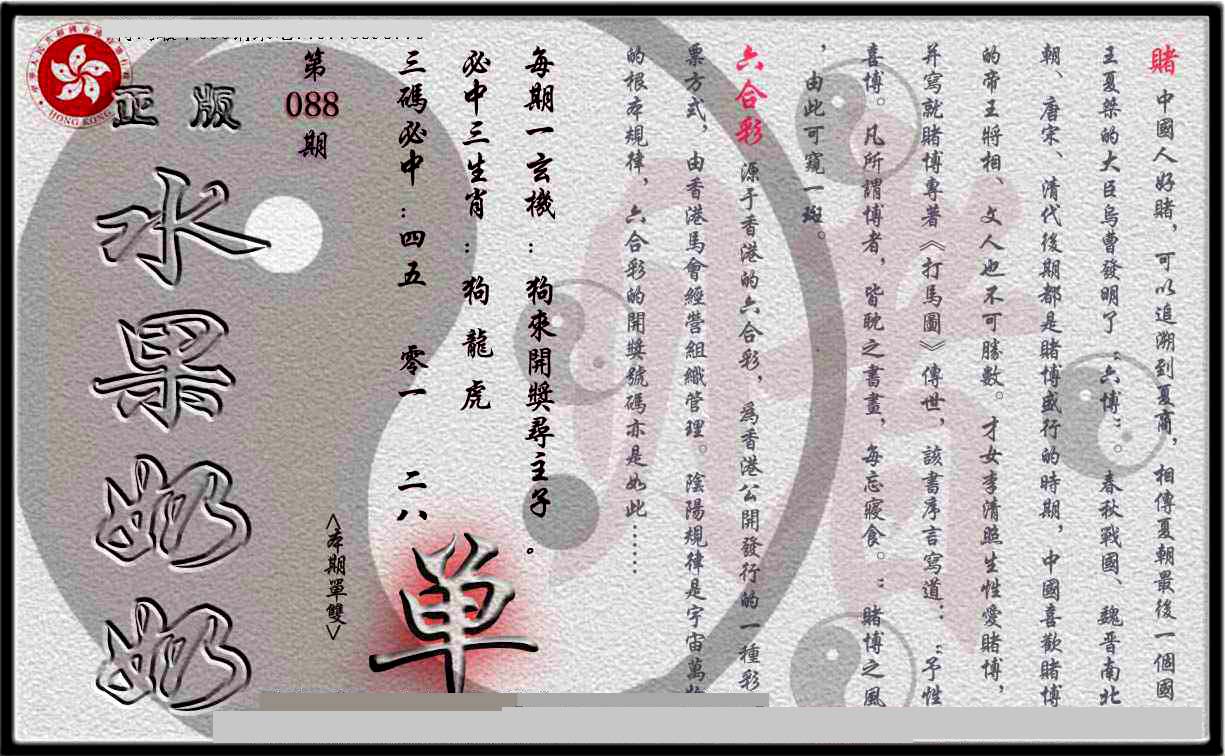 賭 中國人好賭，可以追溯到夏商，相傳夏朝最後一個國
王夏桀的大臣烏曹發明了“六博”。春秋戰國、魏晋南北
朝、唐宋、清代後期都是賭博盛行的時期，中國喜歡賭博
的帝王將相、文人也不可勝數。才女李清照生性愛賭博，
并寫就賭博專著《打馬圖》傳世，該書序言寫道：“予性
喜博。凡所謂博者，皆耽之書畫，每忘寢食。”賭博之風
，由此可窺一斑。
六合彩 源于香港的六合彩，爲香港公開發行的一種彩
票方式，由香港馬會經營組織管理。陰陽規律是宇宙萬物
的根本規律，六合彩的開獎號碼亦是如此……
每期一玄機：狗來開獎尋主子。
必中三生肖：狗 龍 虎
三碼必中：四五 零一 二八
單
<本期單雙>
第
088
期
正版
水果奶奶
HONG KONG